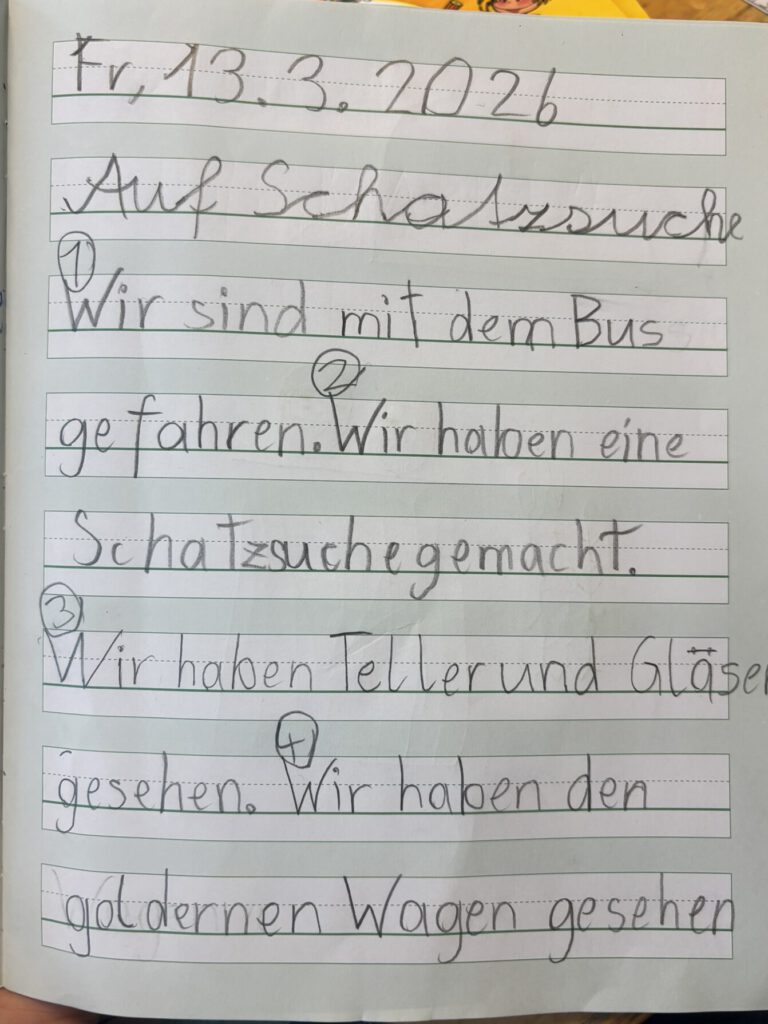 Fr, 13.3.2026
Auf Schatzsuche
① Wir sind mit dem Bus
gefahren. ② Wir haben eine
Schatzsuche gemacht.
③ Wir haben Teller und Gläser
gesehen. ④ Wir haben den
goldernen Wagen gesehen